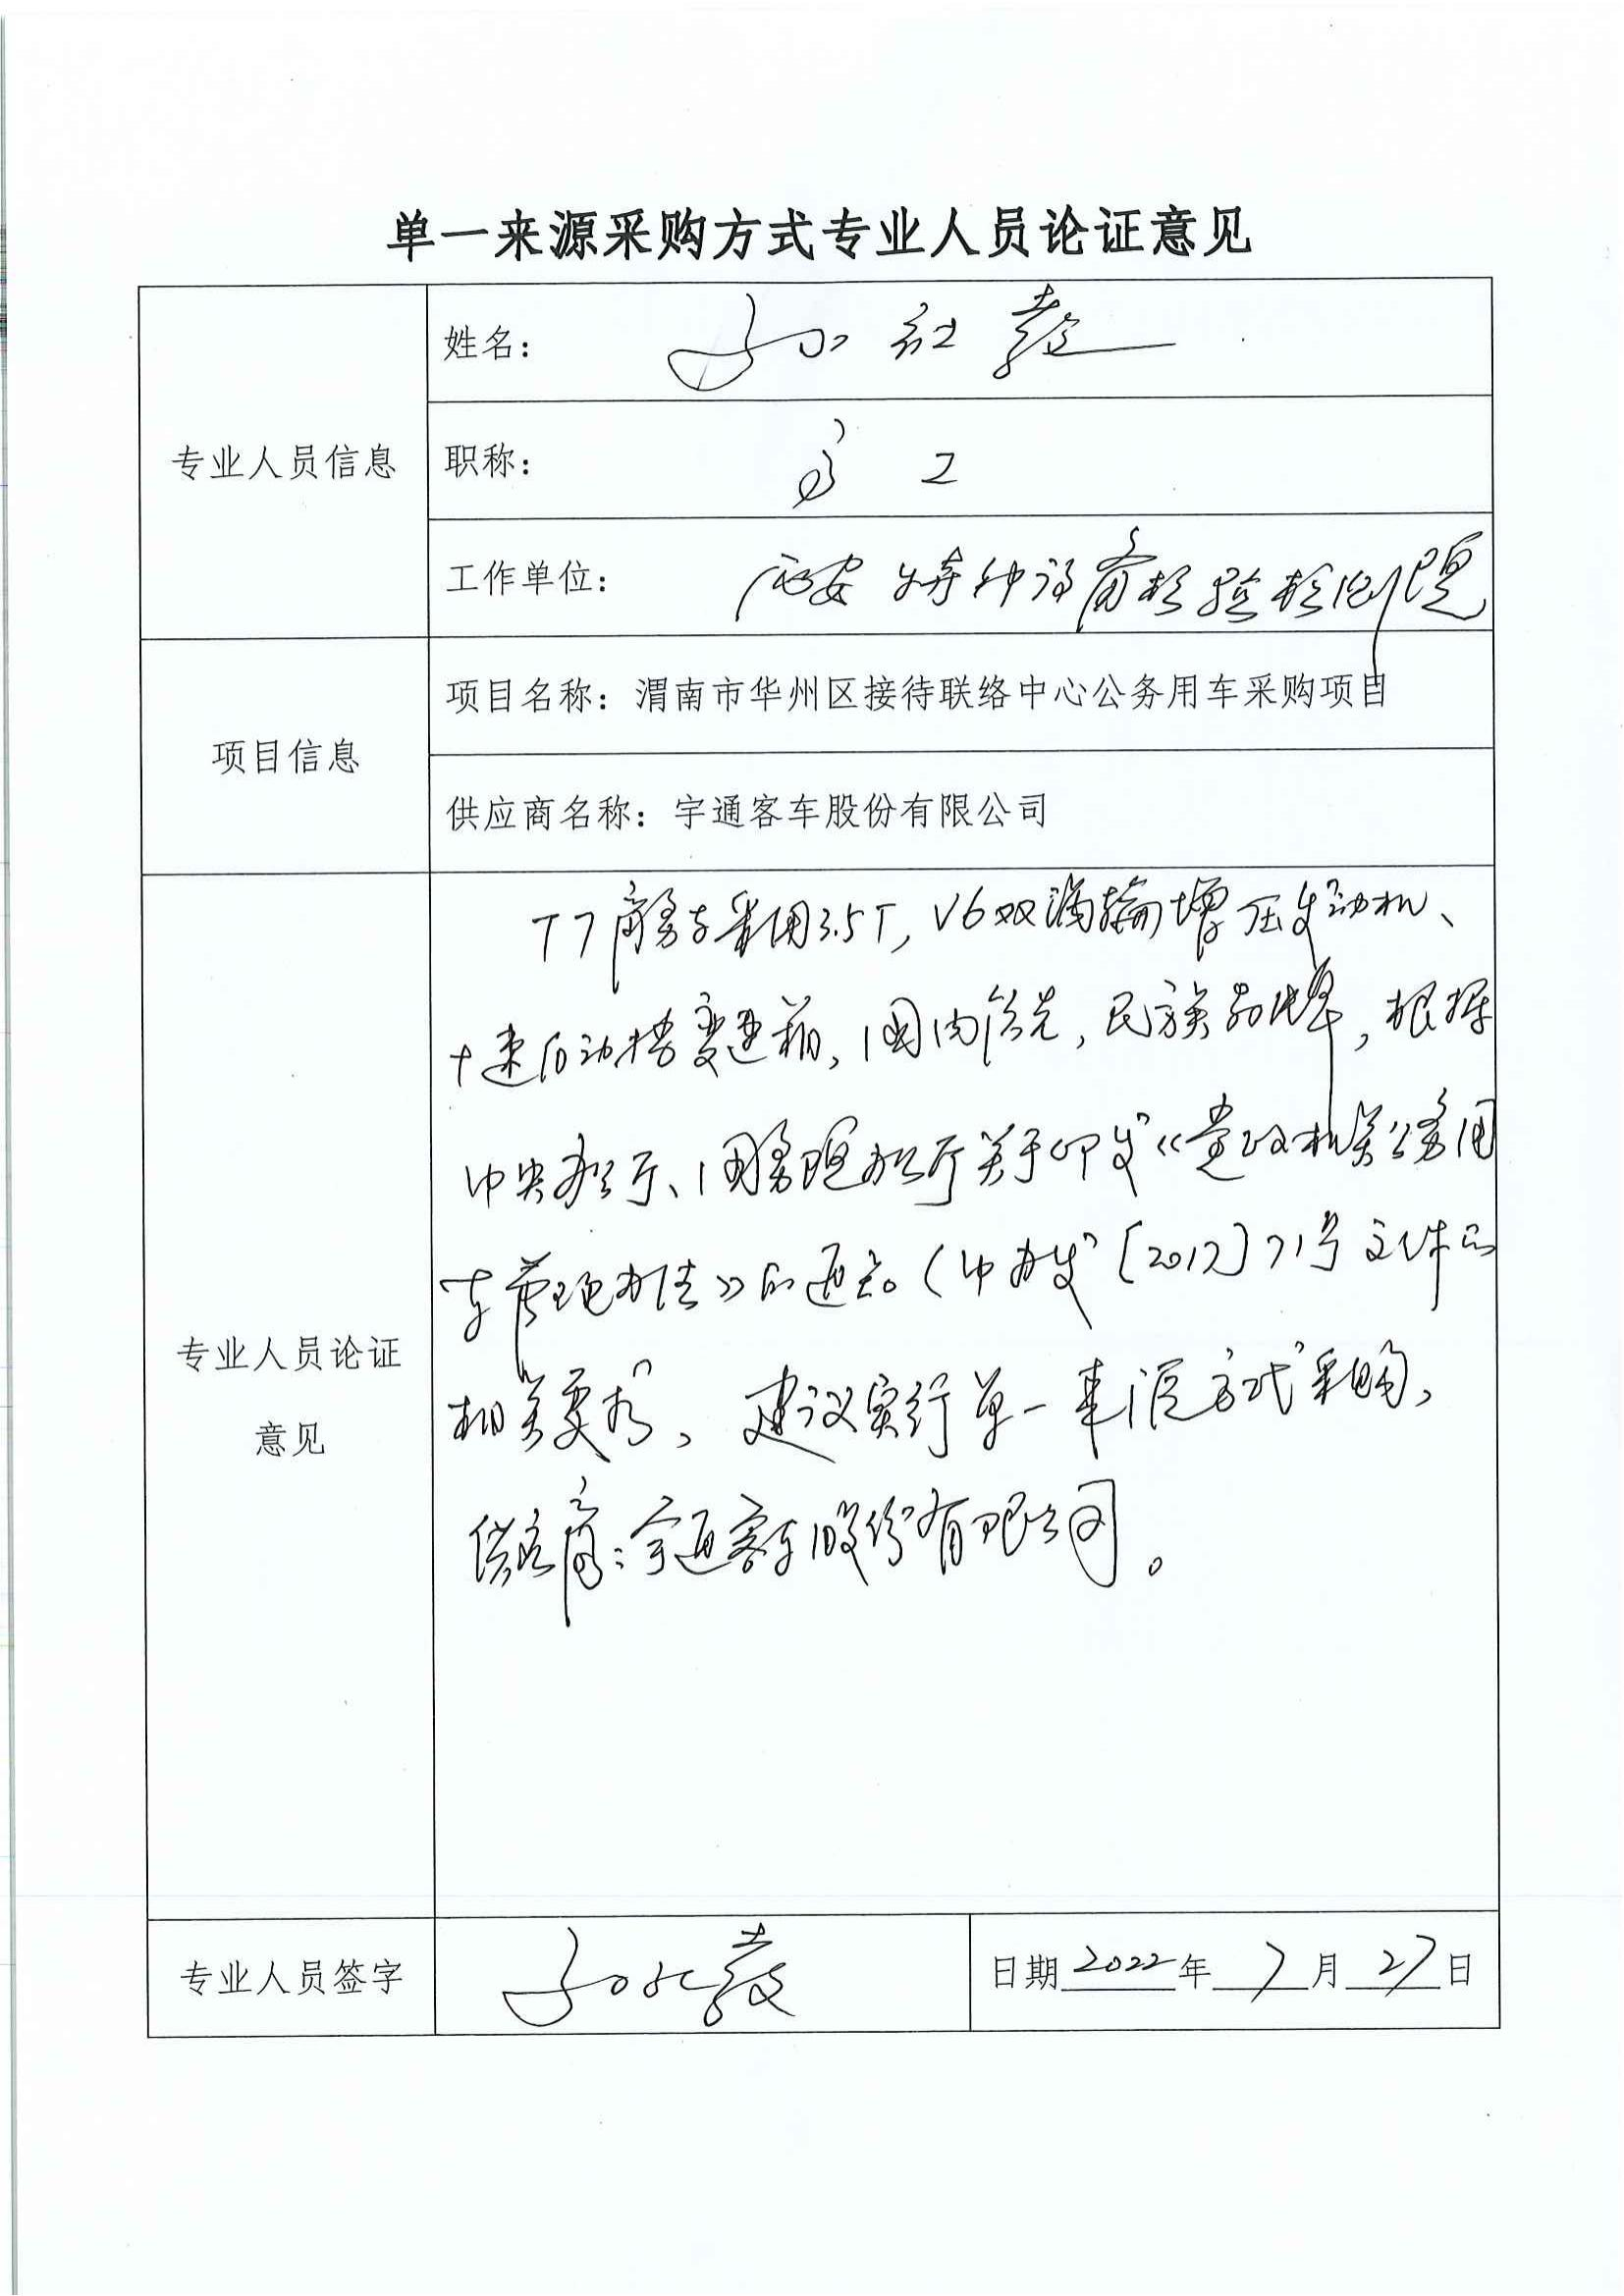 单一来源采购方式专业人员论证意见
专业人员信息
姓名：
职称： 高工
工作单位： 西安特种设备检验检测院
项目信息
项目名称：渭南市华州区接待联络中心公务用车采购项目
供应商名称：宇通客车股份有限公司
专业人员论证
意见
T7商务车采用3.5T，V6双涡轮增压发动机、
十速自动挡变速箱，国内领先，民族品牌，根据
中央办公厅、国务院办公厅关于印发《党政机关公务用
车管理办法》的通知（中办发〔2017〕71号文件的
相关要求，建议实行单一来源方式采购，
供应商：宇通客车股份有限公司。
专业人员签字
日期 2022 年 7 月 27 日